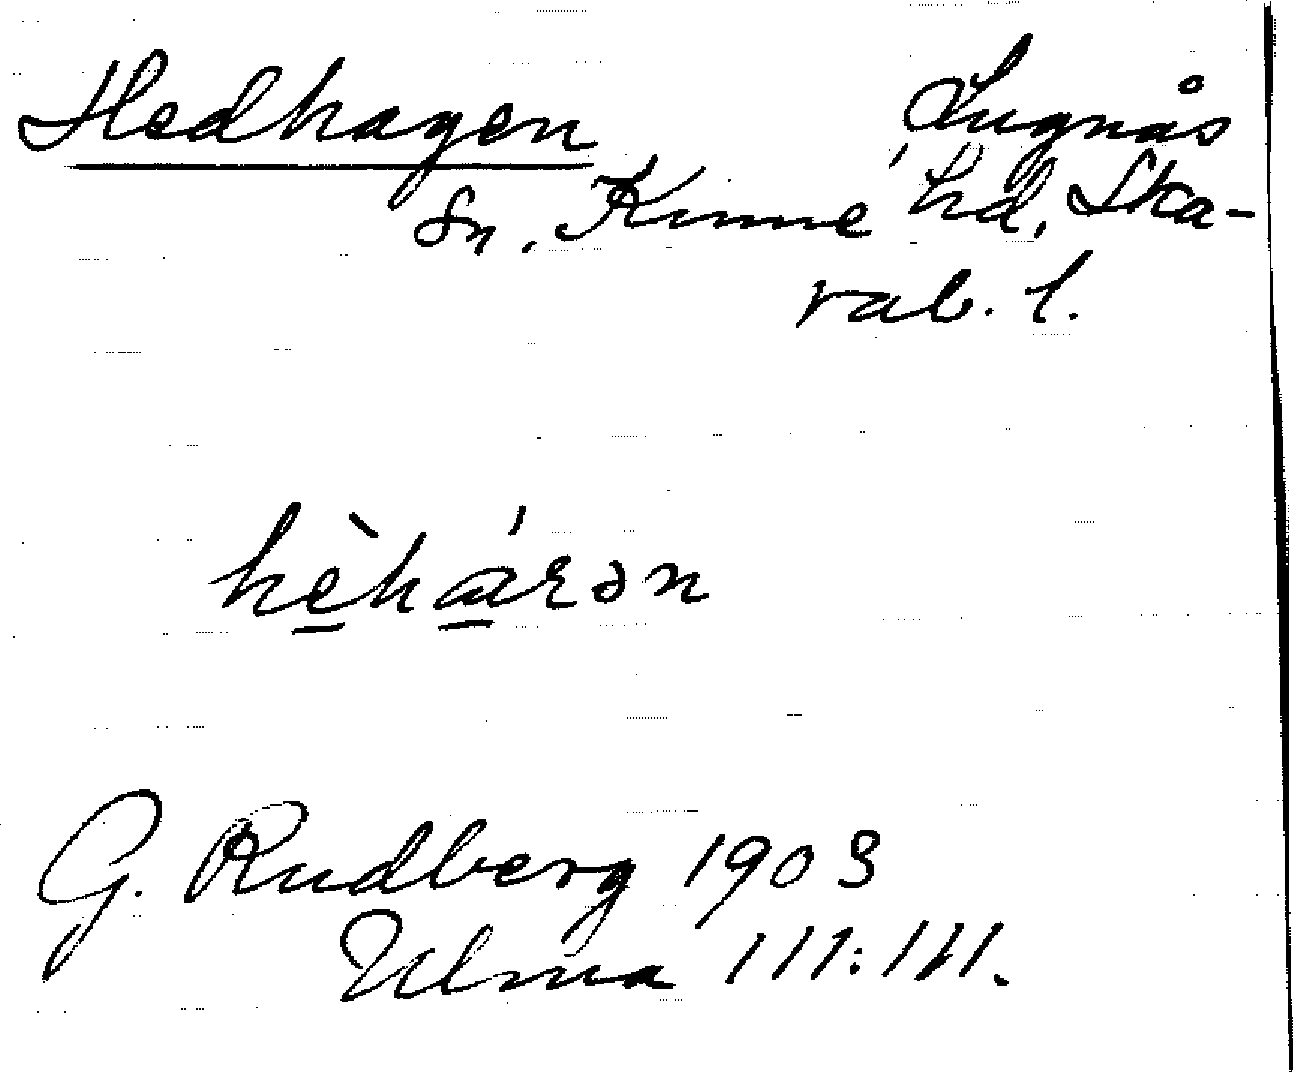 Hedhagen Lugnås
sn. Kinne hd, Ska-
rab. l.
hèháɛən
G. Rudberg 1903
Ulma 111:111.